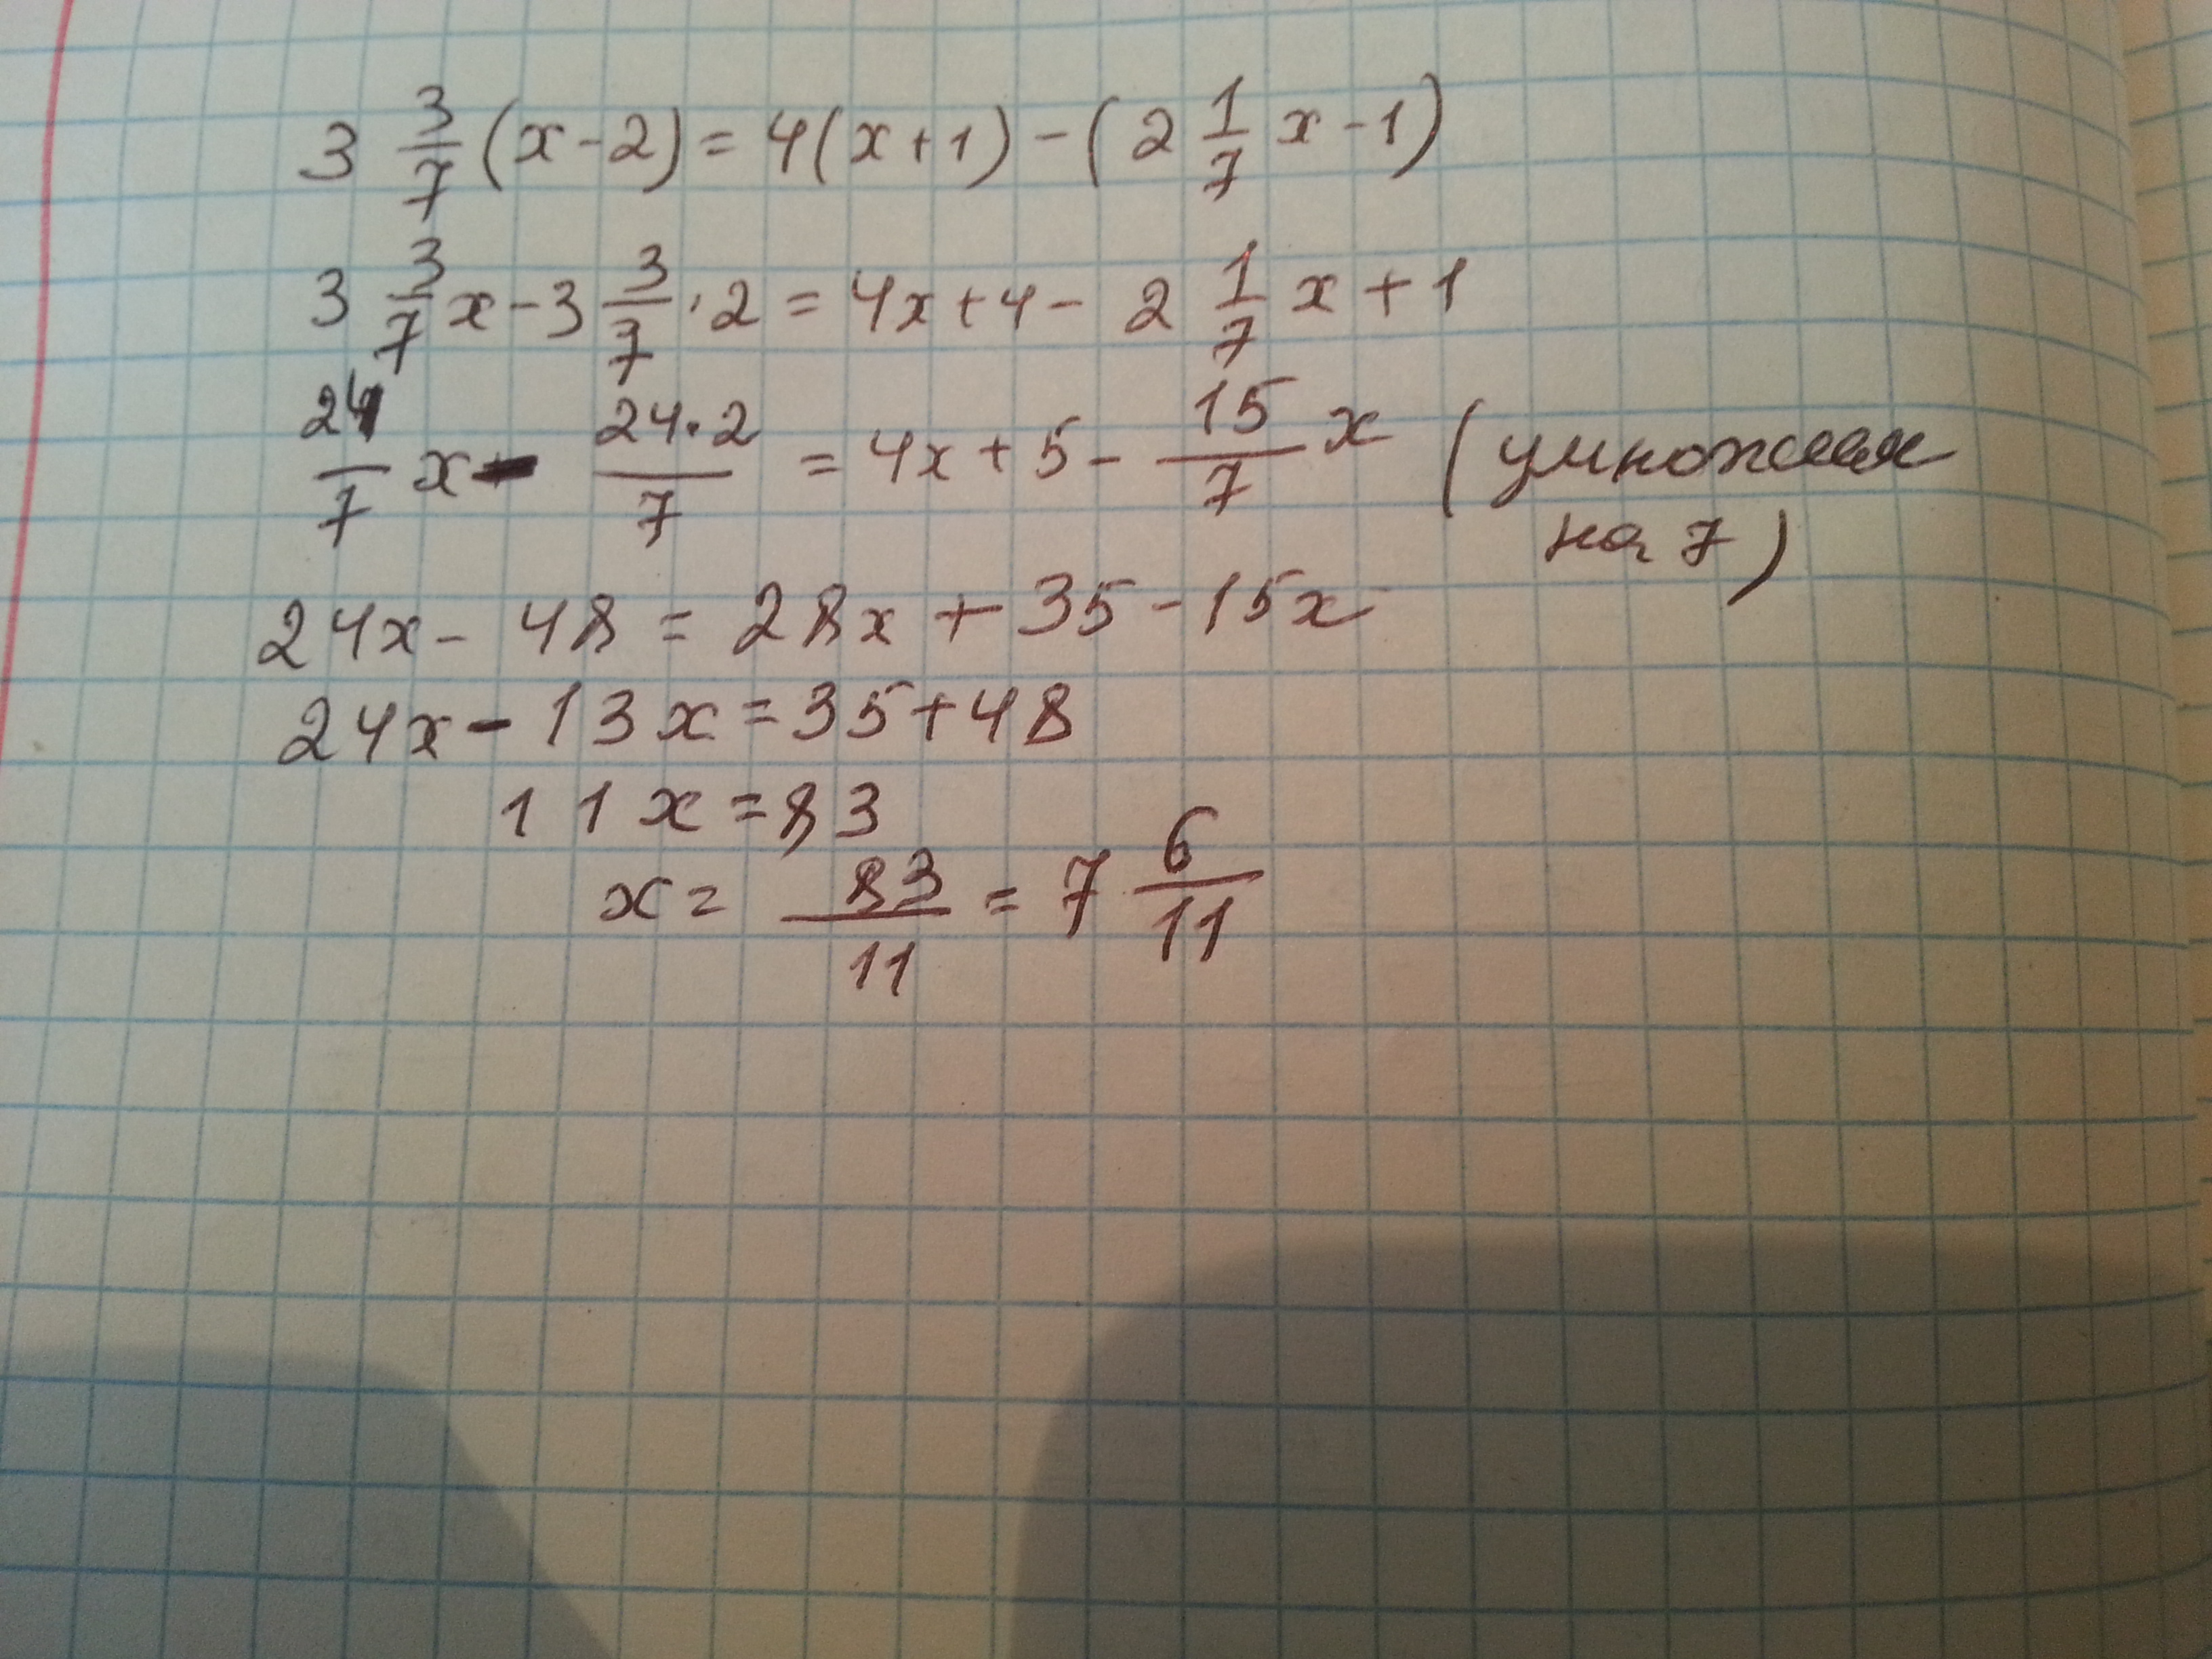 3 3/7 (x-2) = 4(x+1) - (2 1/7 x - 1)
3 3/7 x - 3 3/7 · 2 = 4x + 4 - 2 1/7 x + 1
24/7 x - 24·2/7 = 4x + 5 - 15/7 x (умножая
на 7)
24x - 48 = 28x + 35 - 15x
24x - 13x = 35 + 48
11x = 83
x = 83/11 = 7 6/11